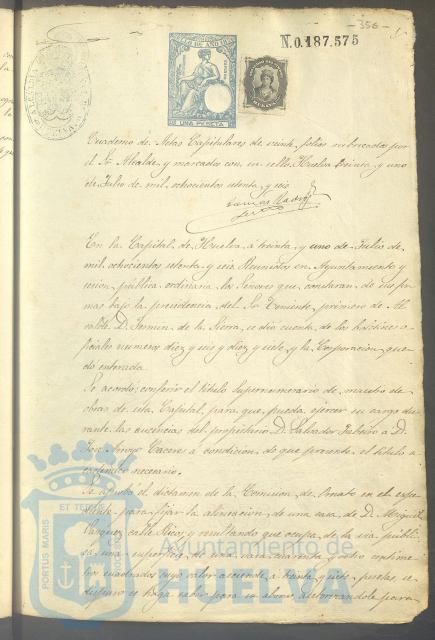 356
N.0.187.575
UNA PESETA
Cuaderno de Actas Capitulares de veinte folios rubricados por
el Sr. Alcalde y marcados con su sello. Huelva treinta y uno
de Julio de mil ochocientos setenta y seis
En la Capital de Huelva, á treinta y uno de Julio de
mil ochocientos setenta y seis Reunidos en Ayuntamiento y
sesion pública ordinaria los Señores que constaran de sus fir
mas bajo la presidencia del Sr. Teniente primero de Al
calde D. Fermin de la Sierra, se dió cuenta de los boletines o
ficiales numeros diez y seis y diez y siete, y la Corporacion que
dó enterada.
Se acordó: conferir el titulo Supernumerario de maestro de
obras de esta Capital, para que pueda ejercer su cargo du
rante las ausencias del propietario D. Salvador á D.
José Arroyo Caceres á condicion de que presente el titulo a
cadémico necesario.
Se aprobó el dictamen de la Comision de Ornato en el espe
diente para fijar la alineacion de una casa de D. Miguel
Vazquez calle Ricos y resultando que ocupa de la via públi
ca una superficie de una vara cuarenta y ocho centime
tros cuadrados cuyo valor asciende á treinta y siete pesetas, se
dispuso se haga saber para su abono, autorizandole para
PORTUS MARIS ET TERRE CUSTODIA
Ayuntamiento de
HUELVA